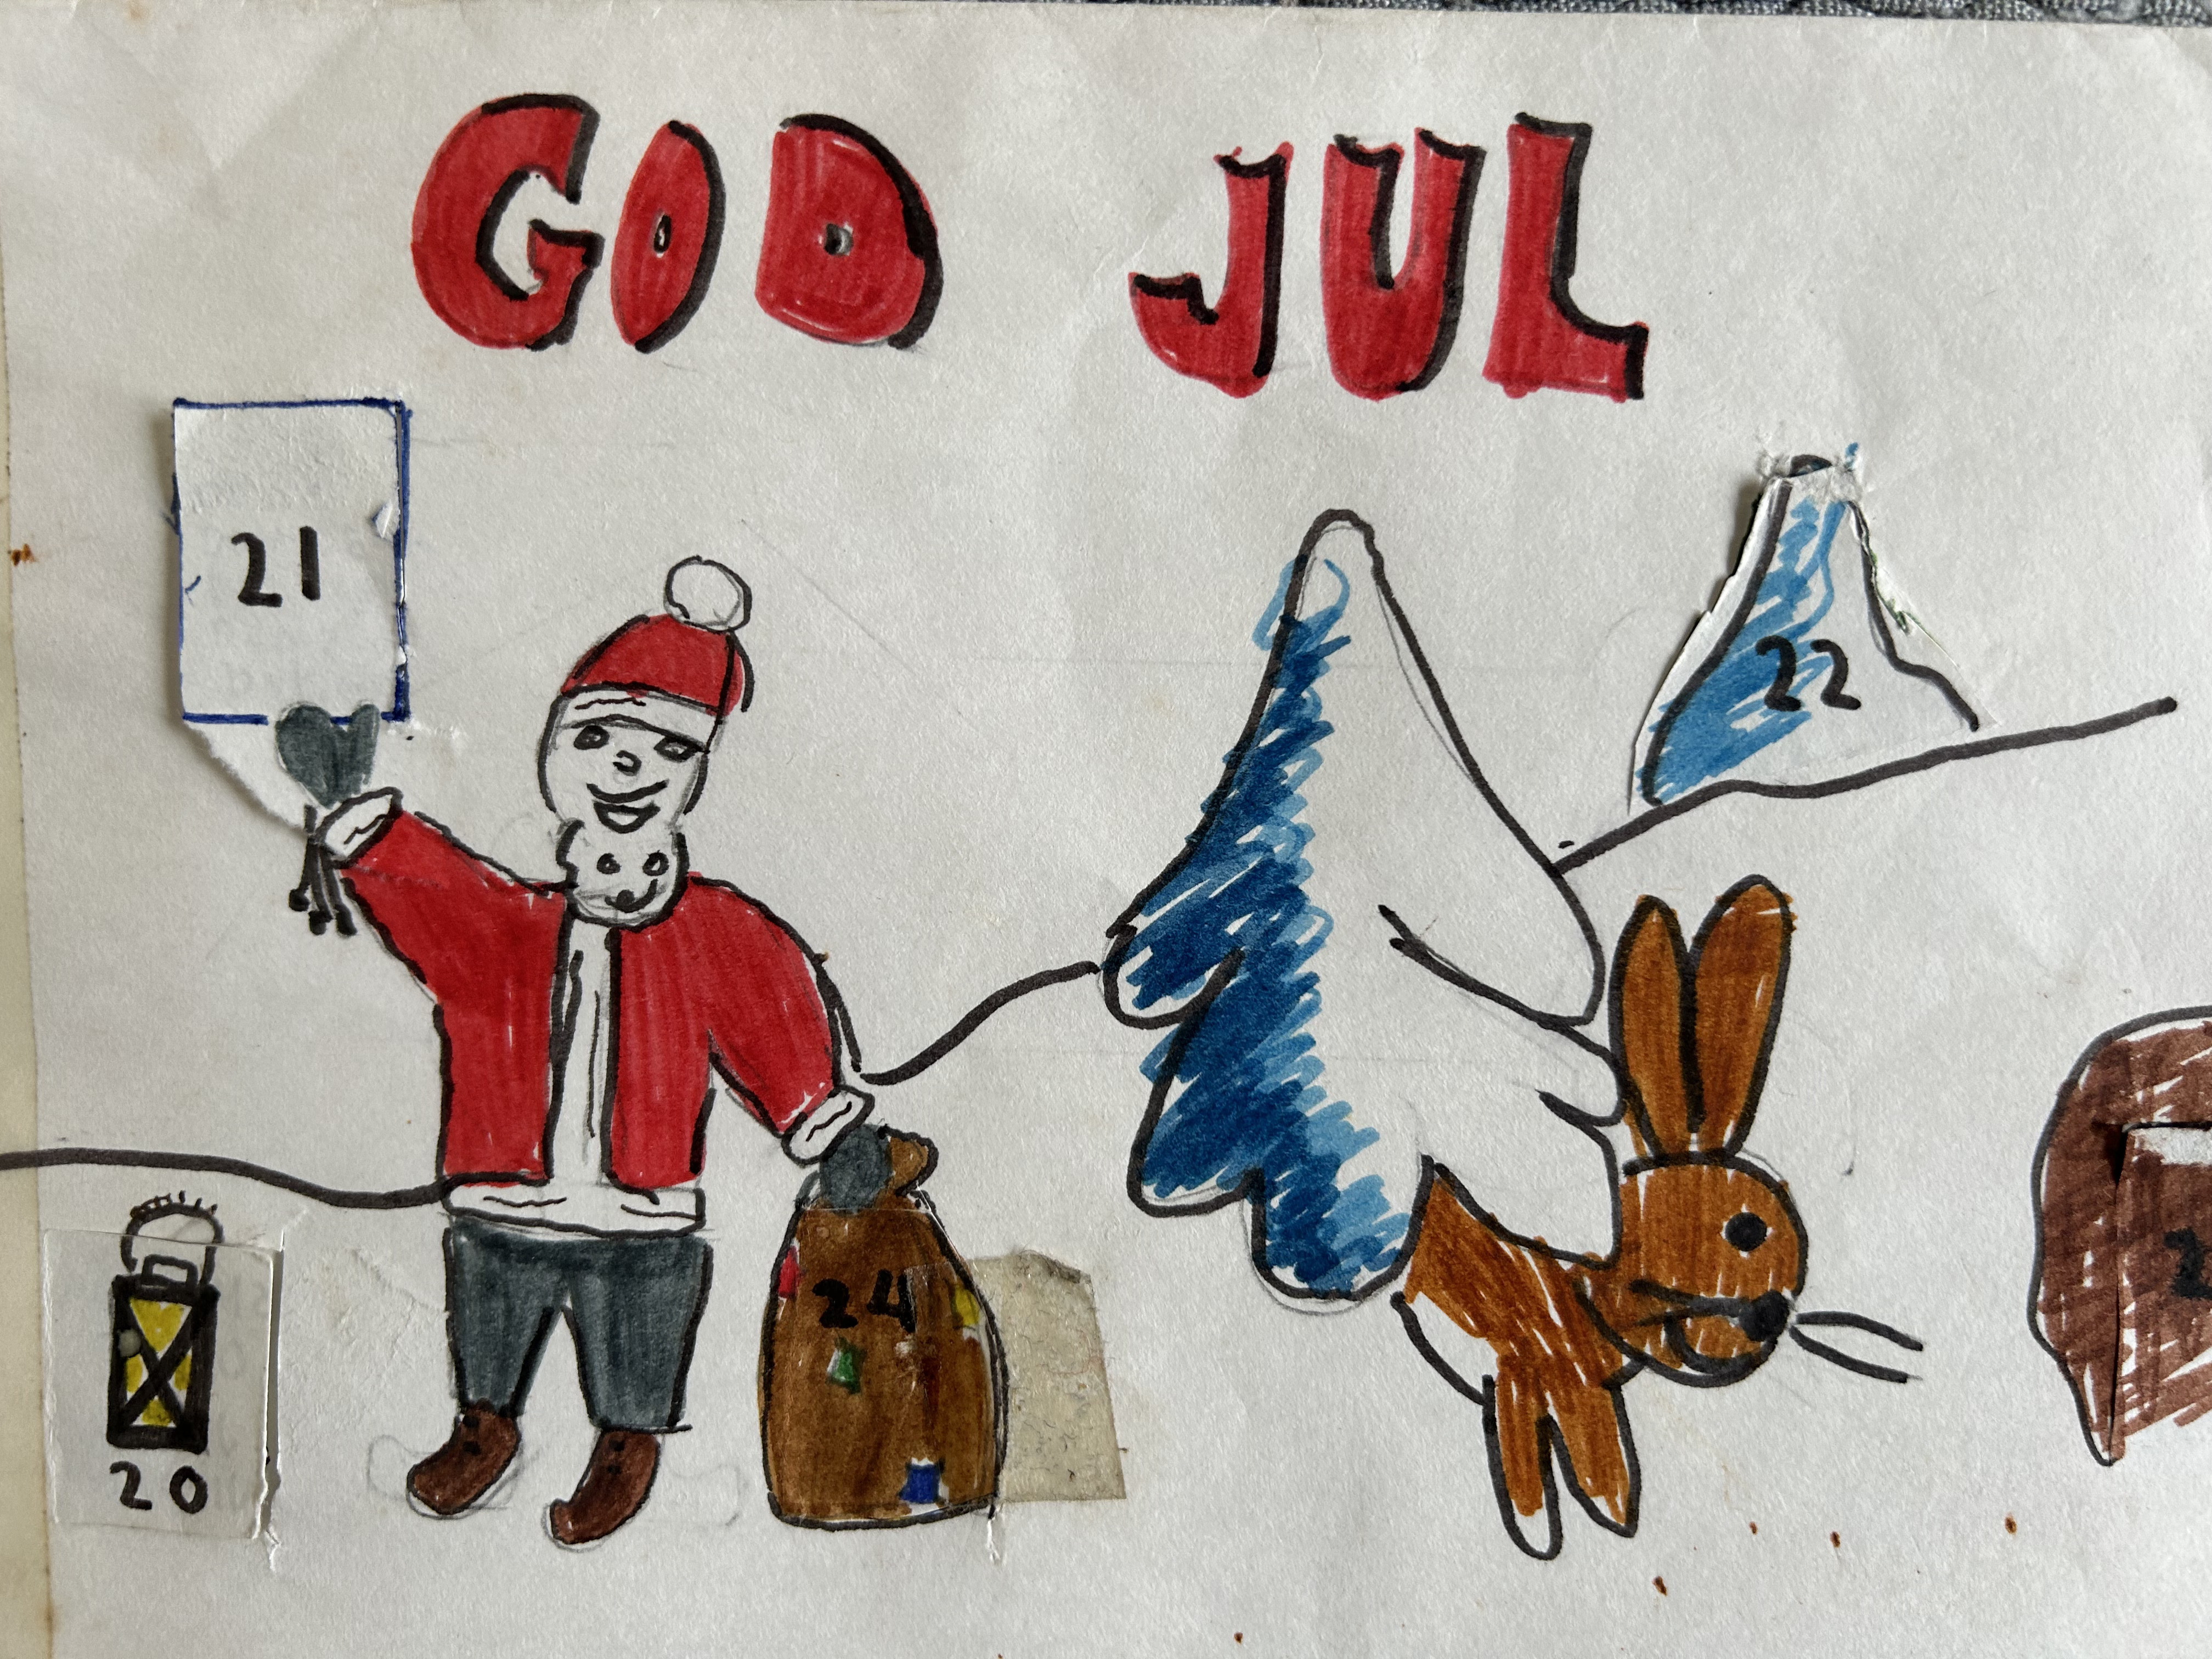 GOD JUL
21
22
24
20